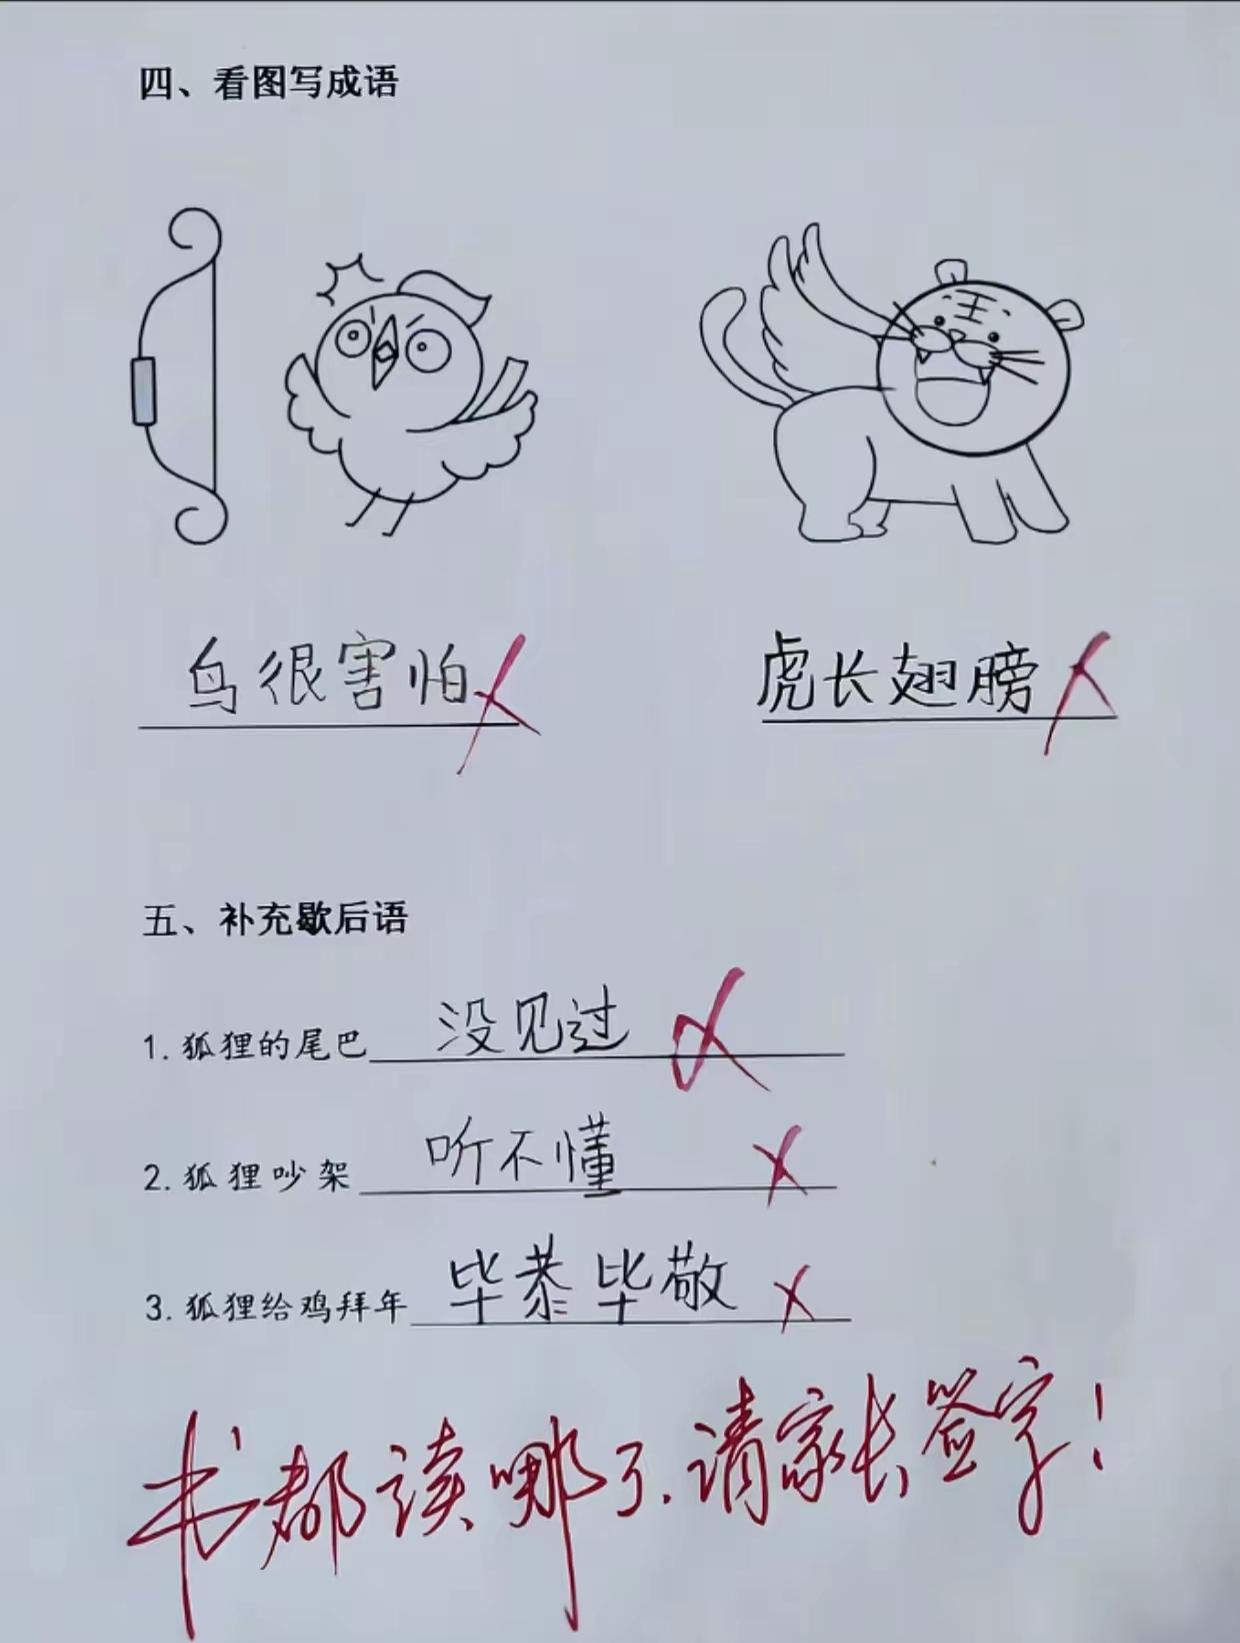 四、看图写成语
王
鸟很害怕
虎长翅膀
五、补充歇后语
1.狐狸的尾巴 没见过
2.狐狸吵架 听不懂
3.狐狸给鸡拜年 毕恭毕敬
书都读哪了.请家长签字!